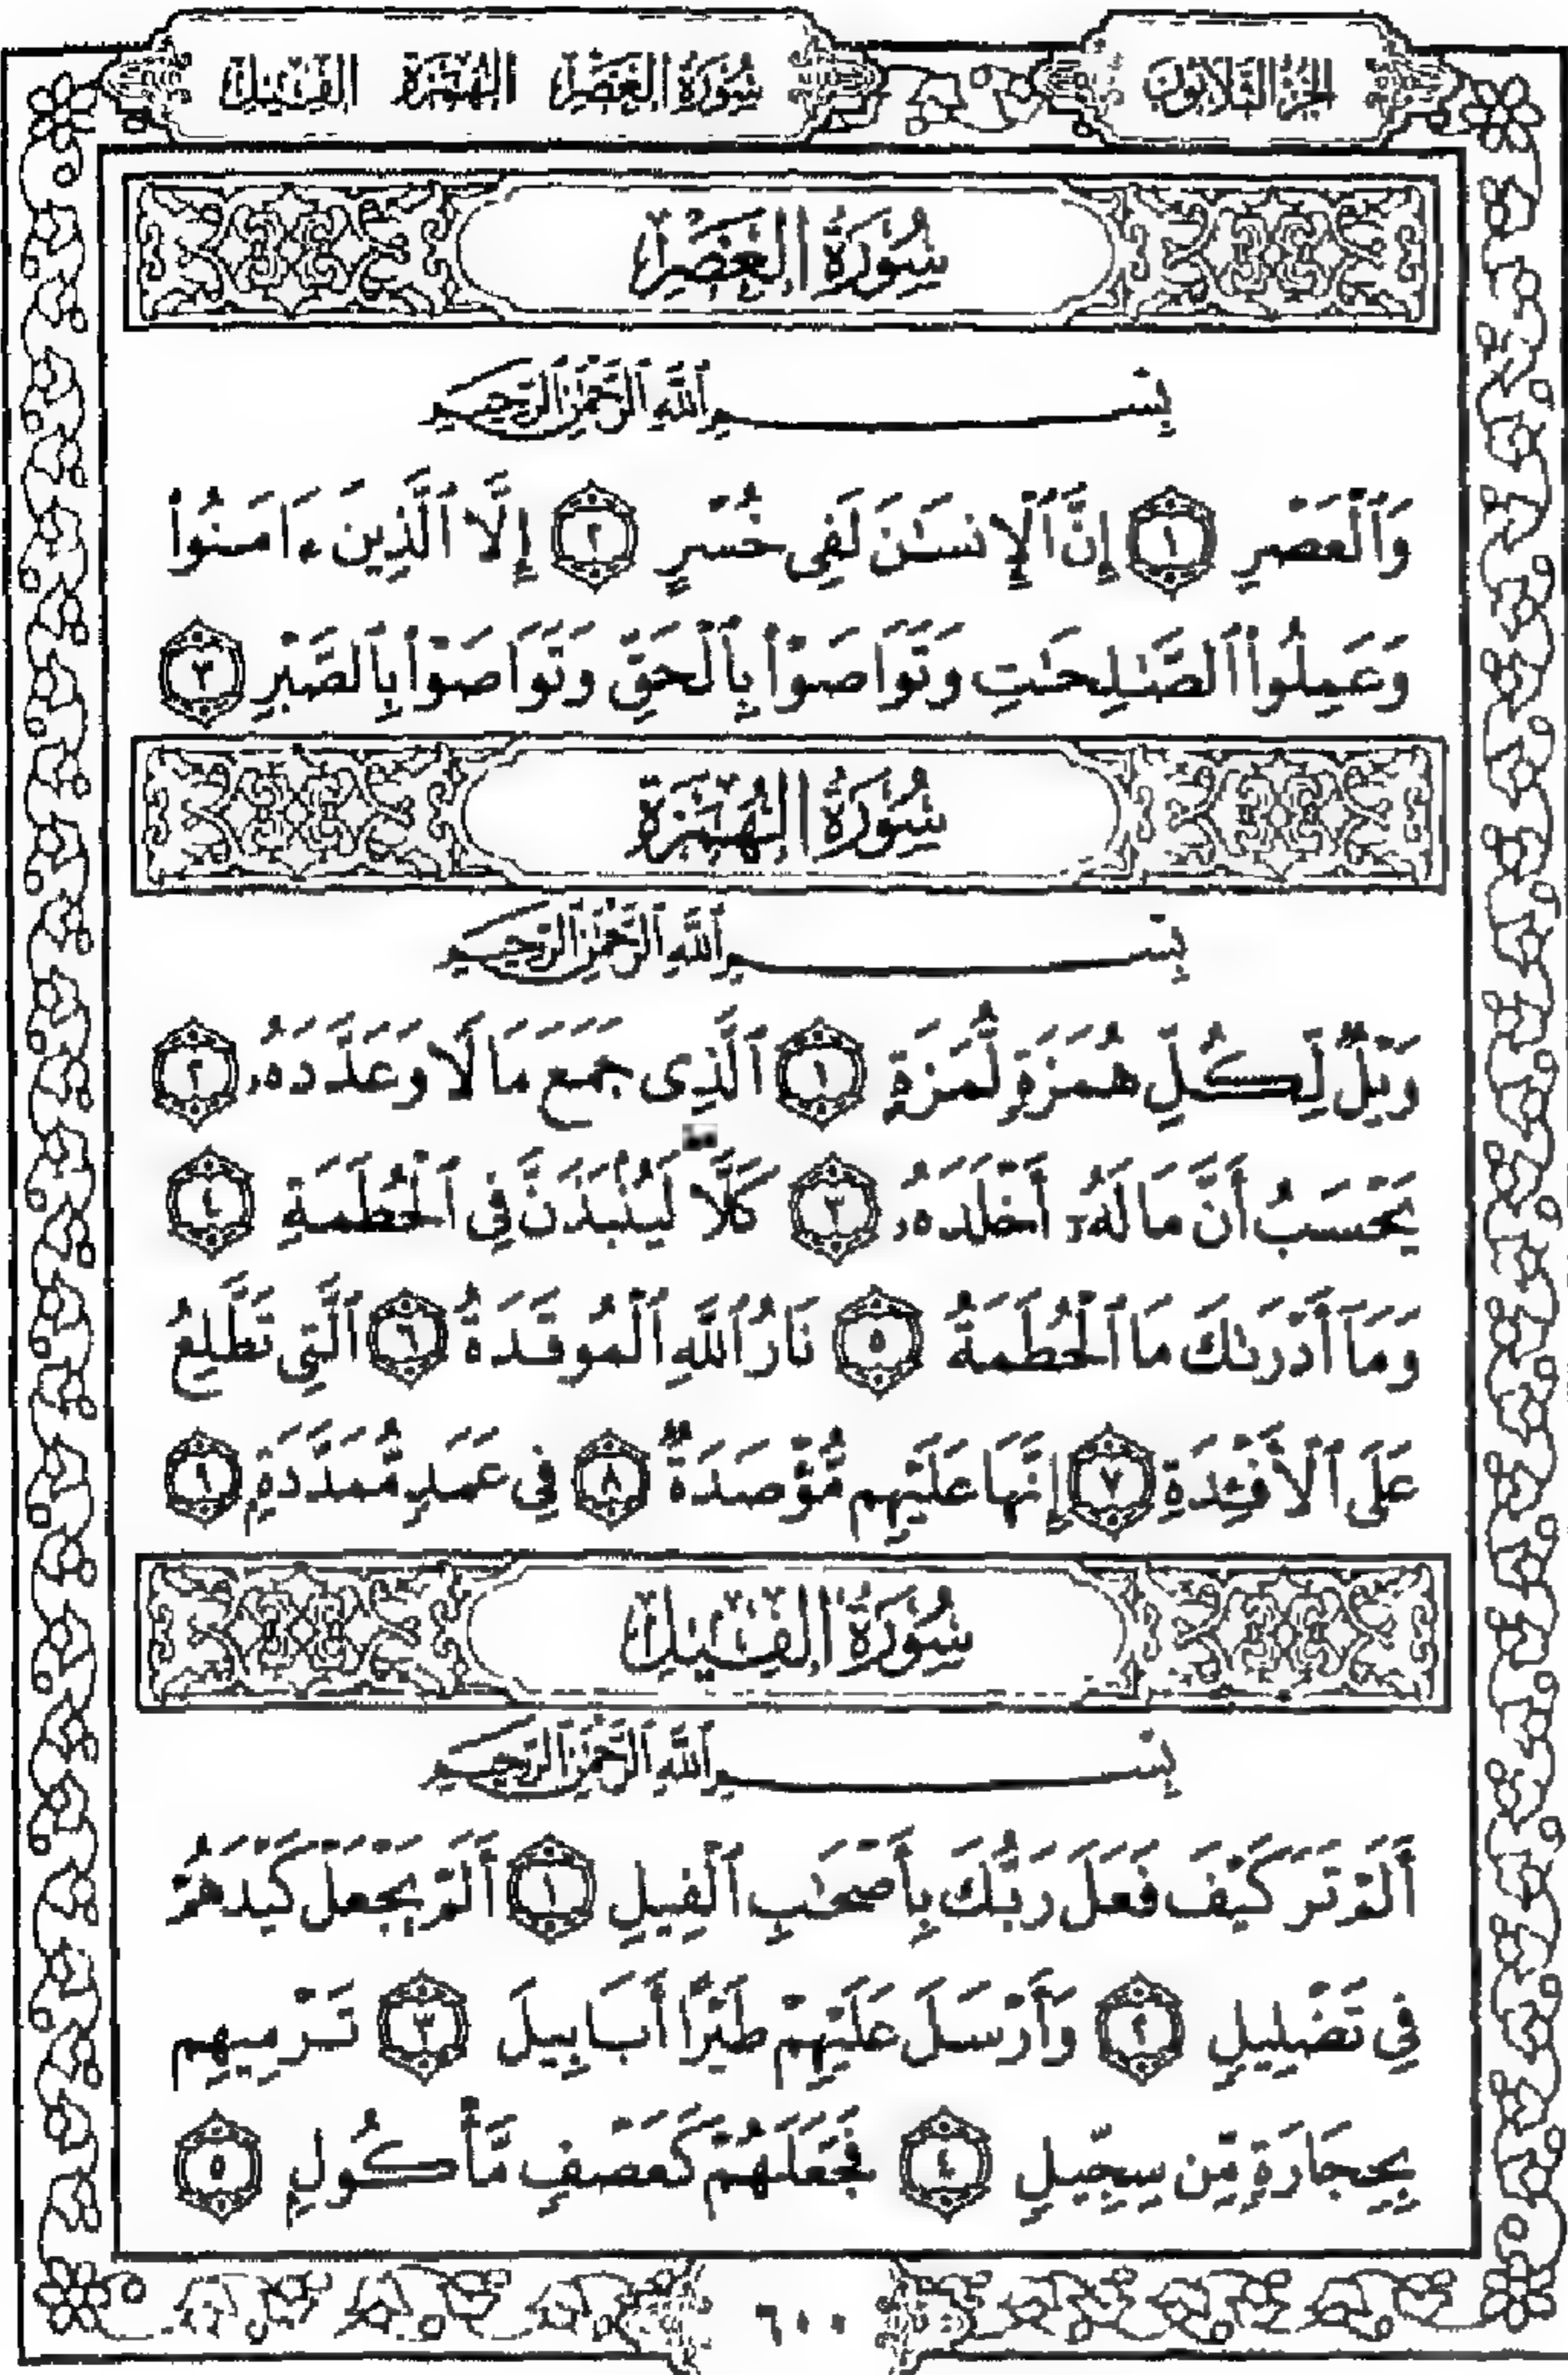 الجزء الثلاثون
سورة العصر الهمزة الفيل
سُورَةُ العَصْرِ
بِسْمِ ٱللَّهِ ٱلرَّحْمَٰنِ ٱلرَّحِيمِ
وَٱلْعَصْرِ ١ إِنَّ ٱلْإِنسَٰنَ لَفِى خُسْرٍ ٢ إِلَّا ٱلَّذِينَ ءَامَنُوا۟
وَعَمِلُوا۟ ٱلصَّٰلِحَٰتِ وَتَوَاصَوْا۟ بِٱلْحَقِّ وَتَوَاصَوْا۟ بِٱلصَّبْرِ ٣
سُورَةُ الهُمَزَةِ
بِسْمِ ٱللَّهِ ٱلرَّحْمَٰنِ ٱلرَّحِيمِ
وَيْلٌ لِّكُلِّ هُمَزَةٍ لُّمَزَةٍ ١ ٱلَّذِى جَمَعَ مَالًا وَعَدَّدَهُۥ ٢
يَحْسَبُ أَنَّ مَالَهُۥٓ أَخْلَدَهُۥ ٣ كَلَّا لَيُنۢبَذَنَّ فِى ٱلْحُطَمَةِ ٤
وَمَآ أَدْرَىٰكَ مَا ٱلْحُطَمَةُ ٥ نَارُ ٱللَّهِ ٱلْمُوقَدَةُ ٦ ٱلَّتِى تَطَّلِعُ
عَلَى ٱلْأَفْـِٔدَةِ ٧ إِنَّهَا عَلَيْهِم مُّؤْصَدَةٌ ٨ فِى عَمَدٍ مُّمَدَّدَةٍۭ ٩
سُورَةُ الفِيلِ
بِسْمِ ٱللَّهِ ٱلرَّحْمَٰنِ ٱلرَّحِيمِ
أَلَمْ تَرَ كَيْفَ فَعَلَ رَبُّكَ بِأَصْحَٰبِ ٱلْفِيلِ ١ أَلَمْ يَجْعَلْ كَيْدَهُمْ
فِى تَضْلِيلٍ ٢ وَأَرْسَلَ عَلَيْهِمْ طَيْرًا أَبَابِيلَ ٣ تَرْمِيهِم
بِحِجَارَةٍ مِّن سِجِّيلٍ ٤ فَجَعَلَهُمْ كَعَصْفٍ مَّأْكُولٍۭ ٥
٦٠٠